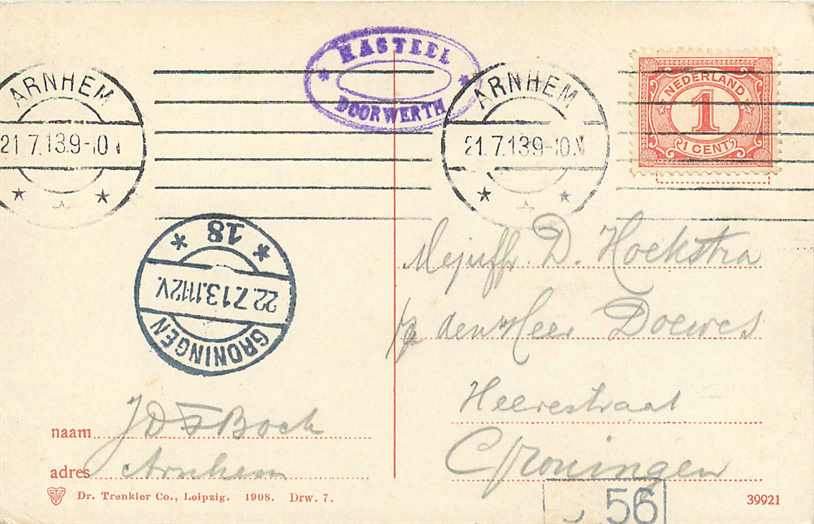 KASTEEL
DOORWERTH
ARNHEM
21.7.13.9-10.V
ARNHEM
21.7.13.9-10.V
NEDERLAND
1
1 CENT
GRONINGEN
22.7.13.11-12V.
18
Mejuffr. D. Hoekstra
p/a den Heer Doewes
Heerestraat
Groningen
naam J D F Bock
adres Arnhem
Dr. Trenkler Co., Leipzig. 1908. Drw. 7.
56
39921